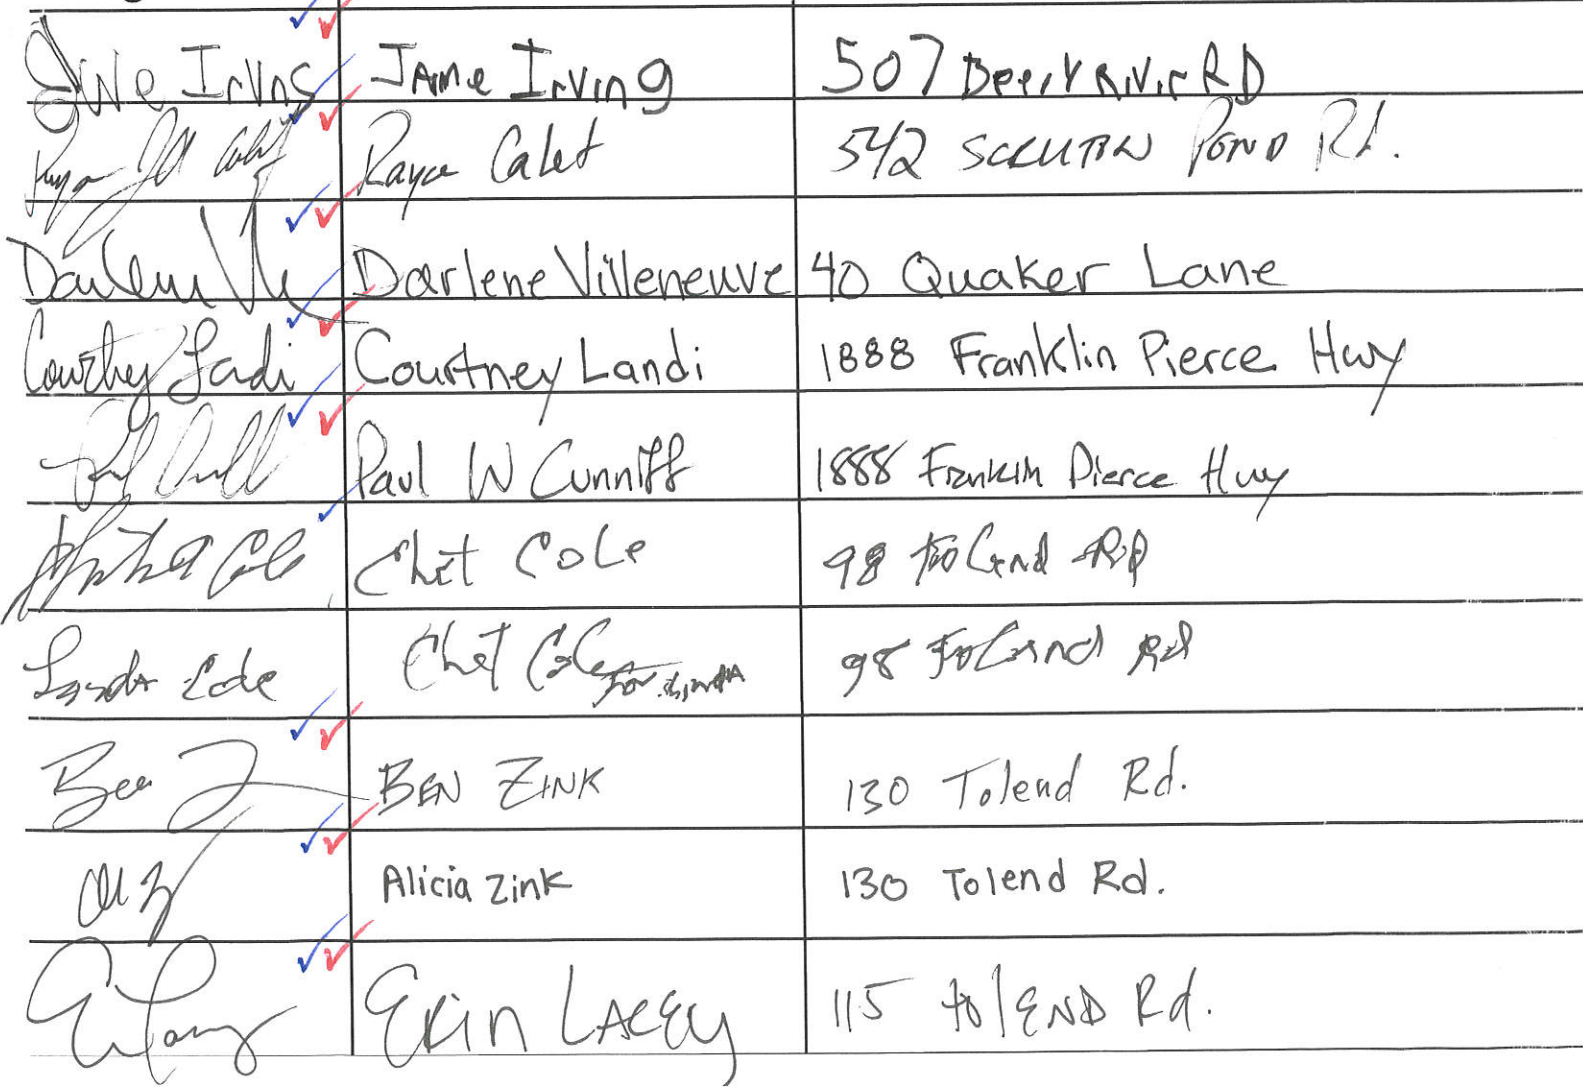 Jame Irving 507 Berry River RD
Royce Calet 542 SCRUTON POND Rd.
Darlene Villeneuve 40 Quaker Lane
Courtney Landi Courtney Landi 1888 Franklin Pierce Hwy
Paul W Cunniff 1888 Franklin Pierce Hwy
Chet Cole 98 Tolend RD
Linda Cole Chet Cole For Linda 98 Tolend Rd
Ben Z BEN ZINK 130 Tolend Rd.
Alicia Zink 130 Tolend Rd.
ERin LACEY 115 tolEND Rd.